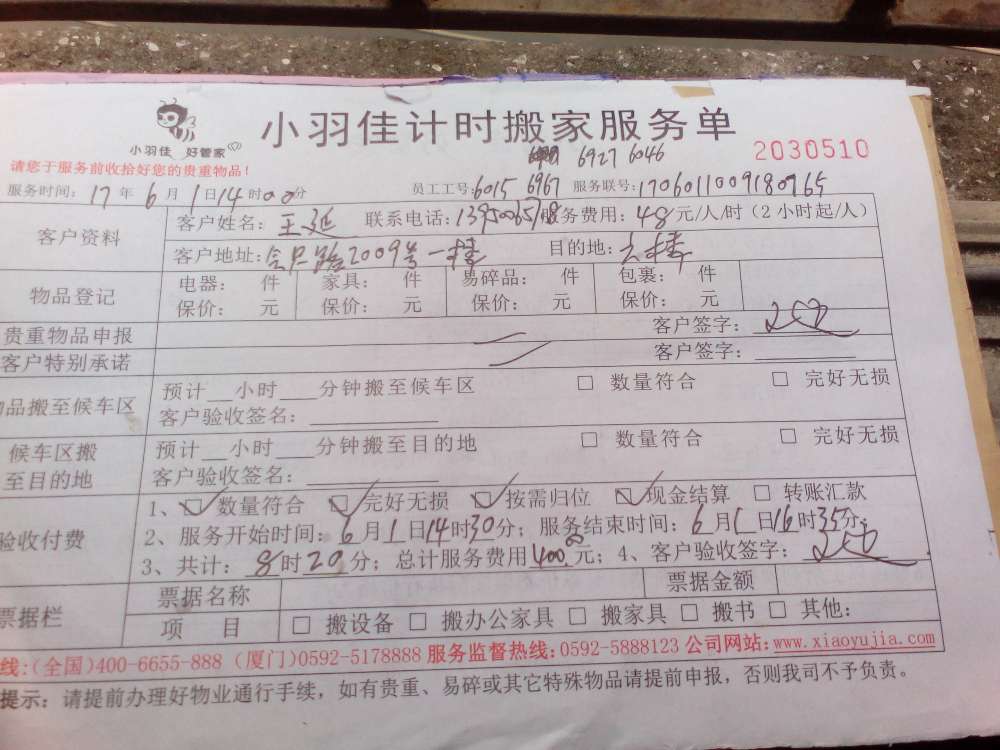 小羽佳 好管家
小羽佳计时搬家服务单
6927 6046
2030510
请您于服务前收拾好您的贵重物品!
服务时间: 17 年 6 月 1 日 14 时 00 分 员工工号: 6015 6967 服务联号: 1706011009180765
客户资料
客户姓名: 王延 联系电话: 服务费用: 48 元/人/时 (2小时起/人)
客户地址: 会展路2009号一楼 目的地: 六楼
物品登记
电器: 件 家具: 件 易碎品: 件 包裹: 件
保价: 元 保价: 元 保价: 元 保价: 元
贵重物品申报 客户签字:
客户特别承诺 客户签字:
品搬至候车区
预计__小时___分钟搬至候车区 □ 数量符合 □ 完好无损
客户验收签名:
候车区搬至目的地
预计__小时___分钟搬至目的地 □ 数量符合 □ 完好无损
客户验收签名:
验收付费
1、☑数量符合 ☑完好无损 ☑按需归位 ☑现金结算 □ 转账汇款
2、服务开始时间: 6 月 1 日 14 时 30 分; 服务结束时间: 6 月 1 日 16 时 35 分;
3、共计: 8 时 20 分; 总计服务费用 400 元; 4、客户验收签字:
票据栏
票据名称 票据金额
项 目 □ 搬设备 □ 搬办公家具 □ 搬家具 □ 搬书 □ 其他:
线:(全国)400-6655-888 (厦门)0592-5178888 服务监督热线:0592-5888123 公司网站:www.xiaoyujia.com
提示: 请提前办理好物业通行手续，如有贵重、易碎或其它特殊物品请提前申报，否则我司不予负责。